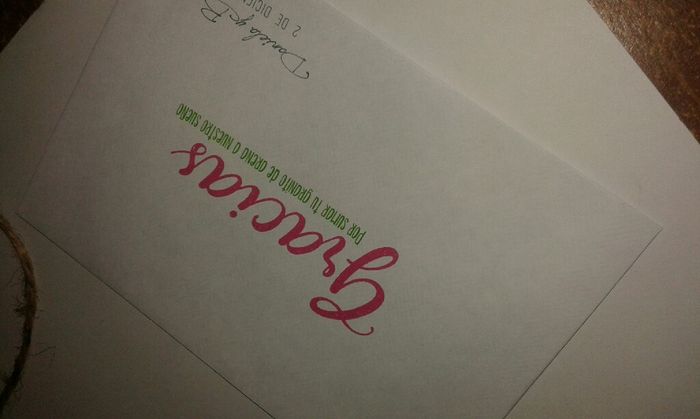 Gracias
por sumar tu granito de arena a nuestro sueño
Daniela y
2 DE